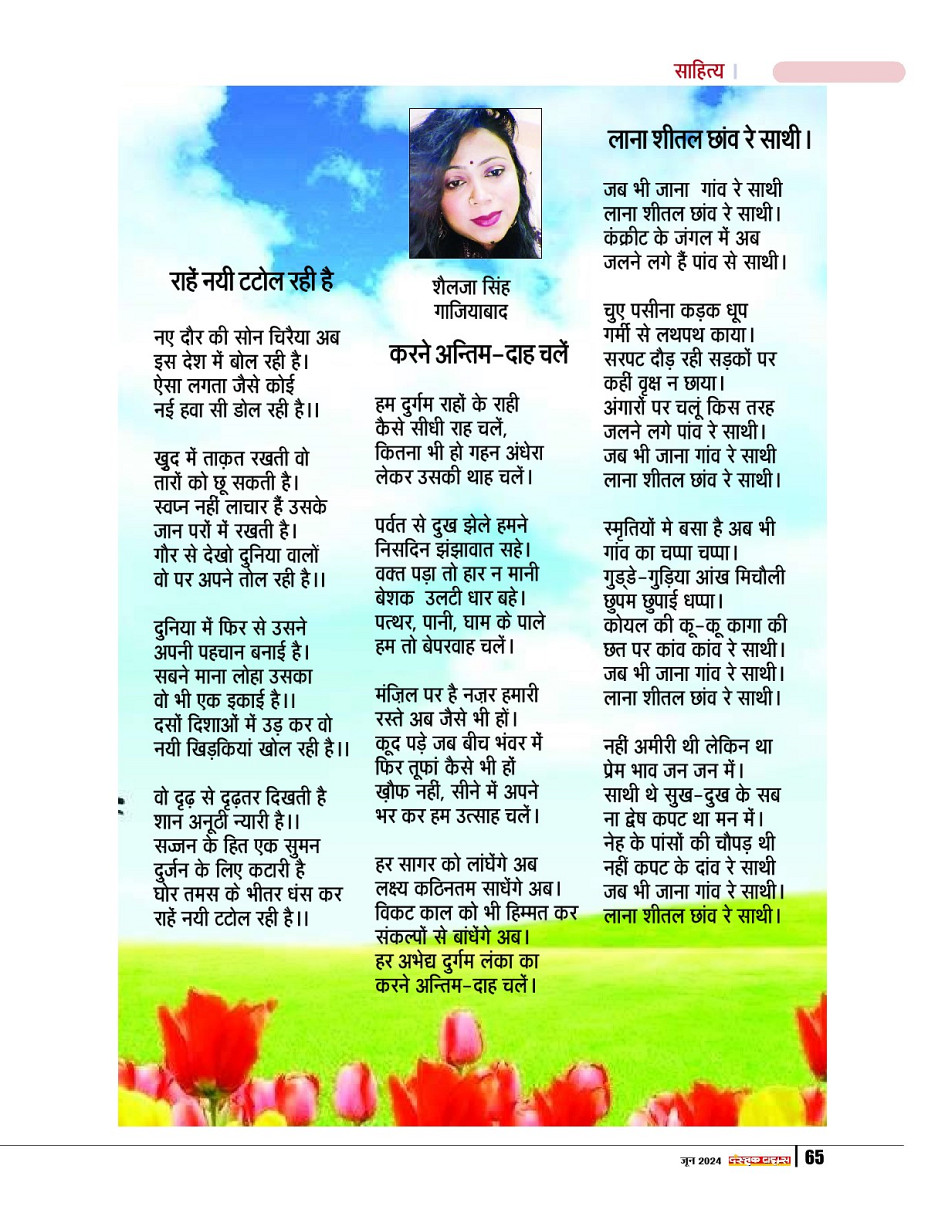 साहित्य ।
राहें नयी टटोल रही है
नए दौर की सोन चिरैया अब
इस देश में बोल रही है।
ऐसा लगता जैसे कोई
नई हवा सी डोल रही है।।
खुद में ताक़त रखती वो
तारों को छू सकती है।
स्वप्न नहीं लाचार हैं उसके
जान परों में रखती है।
गौर से देखो दुनिया वालों
वो पर अपने तोल रही है।।
दुनिया में फिर से उसने
अपनी पहचान बनाई है।
सबने माना लोहा उसका
वो भी एक इकाई है।।
दसों दिशाओं में उड़ कर वो
नयी खिड़कियां खोल रही है।।
वो दृढ़ से दृढ़तर दिखती है
शान अनूठी न्यारी है।।
सज्जन के हित एक सुमन
दुर्जन के लिए कटारी है
घोर तमस के भीतर धंस कर
राहें नयी टटोल रही है।।
शैलजा सिंह
गाजियाबाद
करने अन्तिम-दाह चलें
हम दुर्गम राहों के राही
कैसे सीधी राह चलें,
कितना भी हो गहन अंधेरा
लेकर उसकी थाह चलें।
पर्वत से दुख झेले हमने
निसदिन झंझावात सहे।
वक्त पड़ा तो हार न मानी
बेशक उलटी धार बहे।
पत्थर, पानी, घाम के पाले
हम तो बेपरवाह चलें।
मंज़िल पर है नज़र हमारी
रस्ते अब जैसे भी हों।
कूद पड़े जब बीच भंवर में
फिर तूफां कैसे भी हों
ख़ौफ नहीं, सीने में अपने
भर कर हम उत्साह चलें।
हर सागर को लांघेंगे अब
लक्ष्य कठिनतम साधेंगे अब।
विकट काल को भी हिम्मत कर
संकल्पों से बांधेंगे अब।
हर अभेद्य दुर्गम लंका का
करने अन्तिम-दाह चलें।
लाना शीतल छांव रे साथी।
जब भी जाना गांव रे साथी
लाना शीतल छांव रे साथी।
कंक्रीट के जंगल में अब
जलने लगे हैं पांव से साथी।
चुए पसीना कड़क धूप
गर्मी से लथपथ काया।
सरपट दौड़ रही सड़कों पर
कहीं वृक्ष न छाया।
अंगारों पर चलूं किस तरह
जलने लगे पांव रे साथी।
जब भी जाना गांव रे साथी
लाना शीतल छांव रे साथी।
स्मृतियों मे बसा है अब भी
गांव का चप्पा चप्पा।
गुड्डे-गुड़िया आंख मिचौली
छुपम छुपाई धप्पा।
कोयल की कू-कू कागा की
छत पर कांव कांव रे साथी।
जब भी जाना गांव रे साथी।
लाना शीतल छांव रे साथी।
नहीं अमीरी थी लेकिन था
प्रेम भाव जन जन में।
साथी थे सुख-दुख के सब
ना द्वेष कपट था मन में।
नेह के पांसों की चौपड़ थी
नहीं कपट के दांव रे साथी
जब भी जाना गांव रे साथी।
लाना शीतल छांव रे साथी।
जून 2024
65